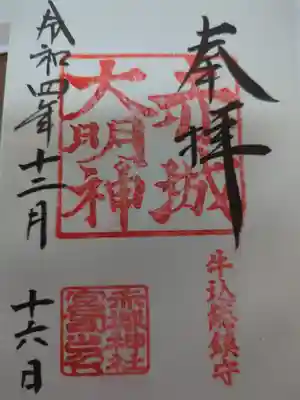 奉拝
牛込総鎮守
赤城
大明神
赤城神社
宮司之印
令和四年十二月
十六日